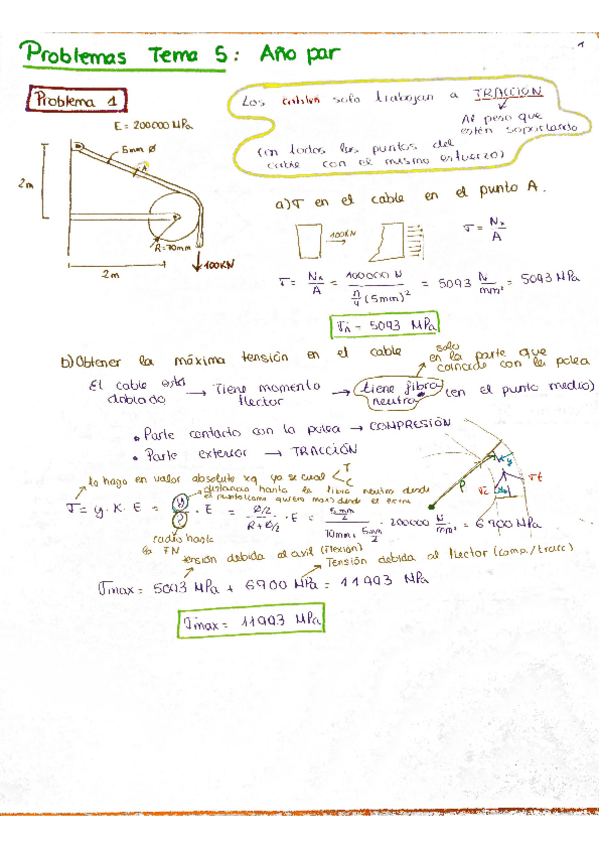 Problemas Tema 5: Año par
1
Problema 1
Los cables solo trabajan a TRACCIÓN
Al peso que
están soportando
(en todos los puntos del
cable con el mismo esfuerzo)
E = 200000 MPa
5mm Ø
A
2m
R=70mm
100KN
2m
a) σ en el cable en el punto A.
100KN
σ = Nx/A
σ = Nx/A = 100000 N / (π/4 (5mm)²) = 5093 N/mm² = 5093 MPa
σA = 5093 MPa
b) Obtener la máxima tensión en el cable
solo
en la parte que
coincide con la polea
El cable está doblado → Tiene momento flector → tiene fibra neutra (en el punto medio)
• Parte contacto con la polea → COMPRESIÓN
• Parte exterior → TRACCIÓN
lo hago en valor absoluto xq ya se cual < T C
distancia hasta la fibra neutra donde
σ = y · K · E = y/ρ · E = Ø/2 / (R + Ø/2) · E = 5mm/2 / (70mm + 5mm/2) · 200000 N/mm² = 6900 MPa
radio hasta
la FN
ρ
y
σc
σt
tensión debida al axil (flexión)
Tensión debida al flector (comp./tracc)
σmax = 5093 MPa + 6900 MPa = 11993 MPa
σmax = 11993 MPa